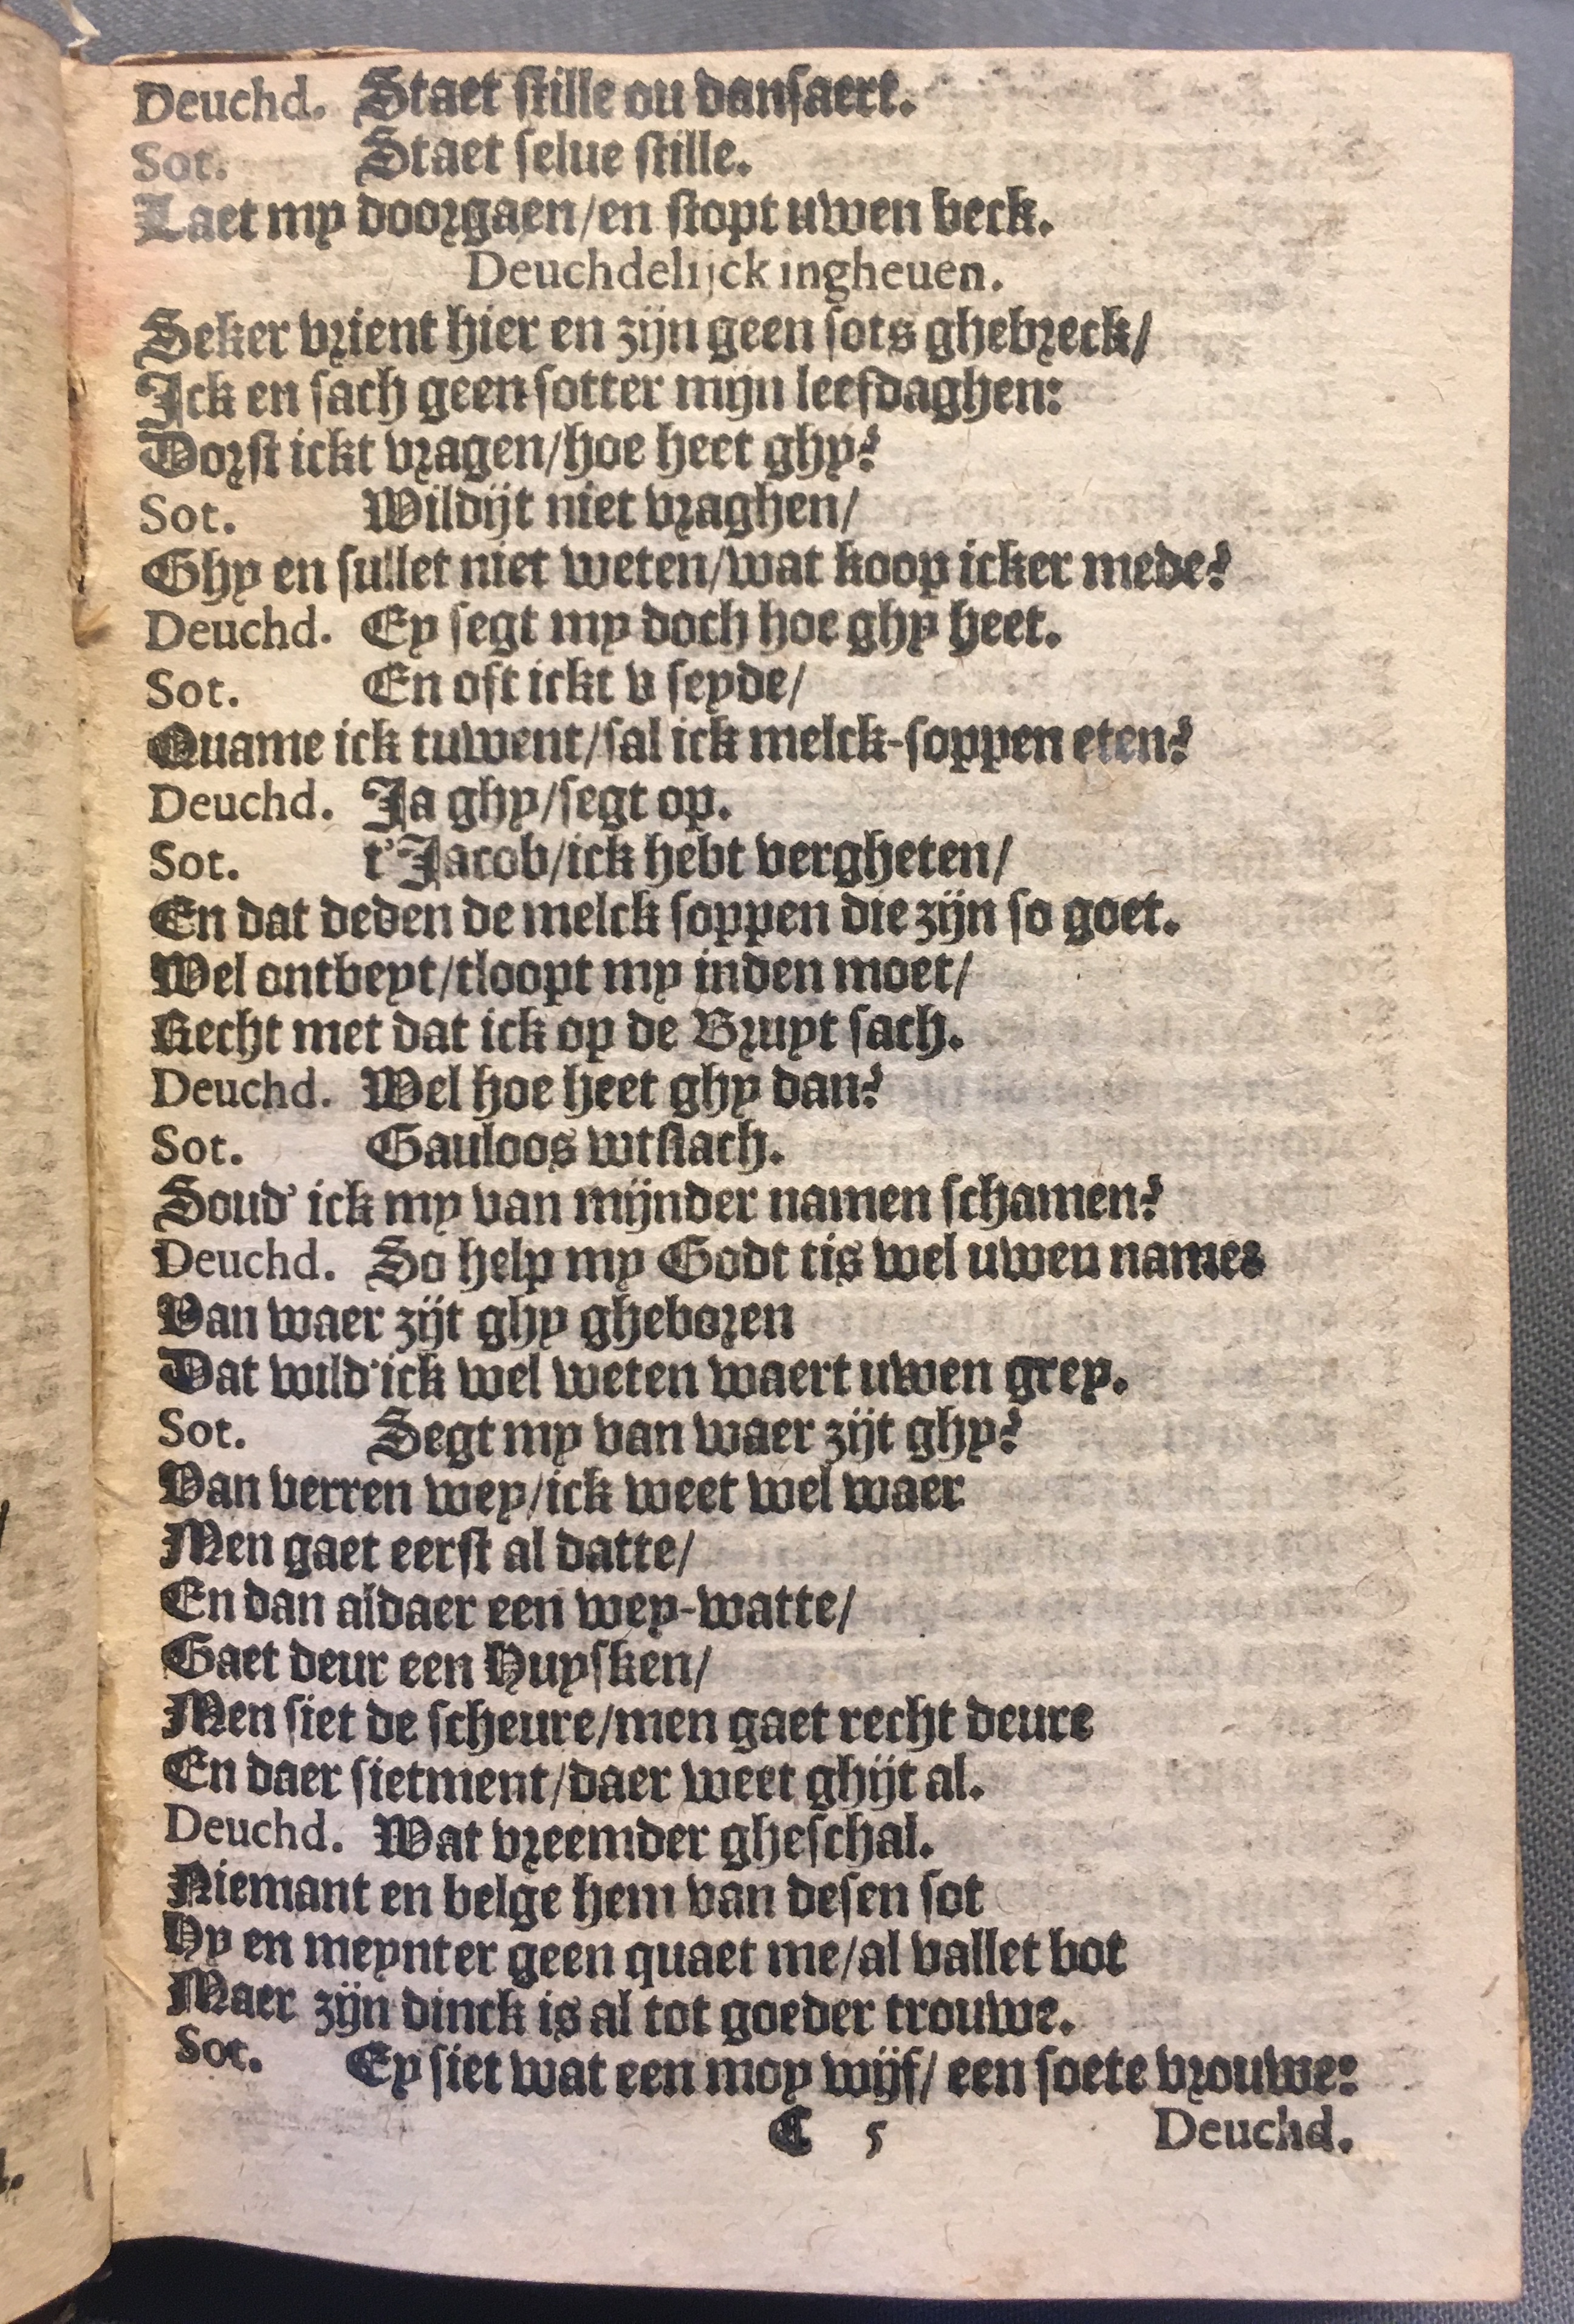 Deuchd. Staet stille ou dansaert.
Sot. Staet selue stille.
Laet my doorgaen/en stopt uwen beck.
Deuchdelijck ingheuen.
Seker vrient hier en zijn geen sots ghebreck/
Ick en sach geen sotter mijn leefdaghen:
Dorst ickt vragen/hoe heet ghy?
Sot. Wildijt niet vraghen/
Ghy en sullet niet weten/wat koop icker mede?
Deuchd. Ey segt my doch hoe ghy heet.
Sot. En oft ickt v seyde/
Quame ick tuwent/sal ick melck-soppen eten?
Deuchd. Ja ghy/segt op.
Sot. t'Jacob/ick hebt vergheten/
En dat deden de melck soppen die zijn so goet.
Wel ontbeyt/tloopt my inden moet/
Recht met dat ick op de Bruyt sach.
Deuchd. Wel hoe heet ghy dan?
Sot. Gauloos wtslach.
Soud' ick my van mijnder namen schamen?
Deuchd. So help my Godt tis wel uwen name:
Van waer zijt ghy gheboren
Dat wild'ick wel weten waert uwen grey.
Sot. Segt my van waer zijt ghy?
Van verren wey/ick weet wel waer
Men gaet eerst al datte/
En dan aldaer een wey-watte/
Gaet deur een Huysken/
Men siet de scheure/men gaet recht deure
En daer sietment/daer weet ghijt al.
Deuchd. Wat vreemder gheschal.
Niemant en belge hem van desen sot
Hy en meynter geen quaet me/al vallet bot
Maer zijn dinck is al tot goeder trouwe.
Sot. Ey siet wat een moy wijf/ een soete vrouwe:
C 5 Deuchd.